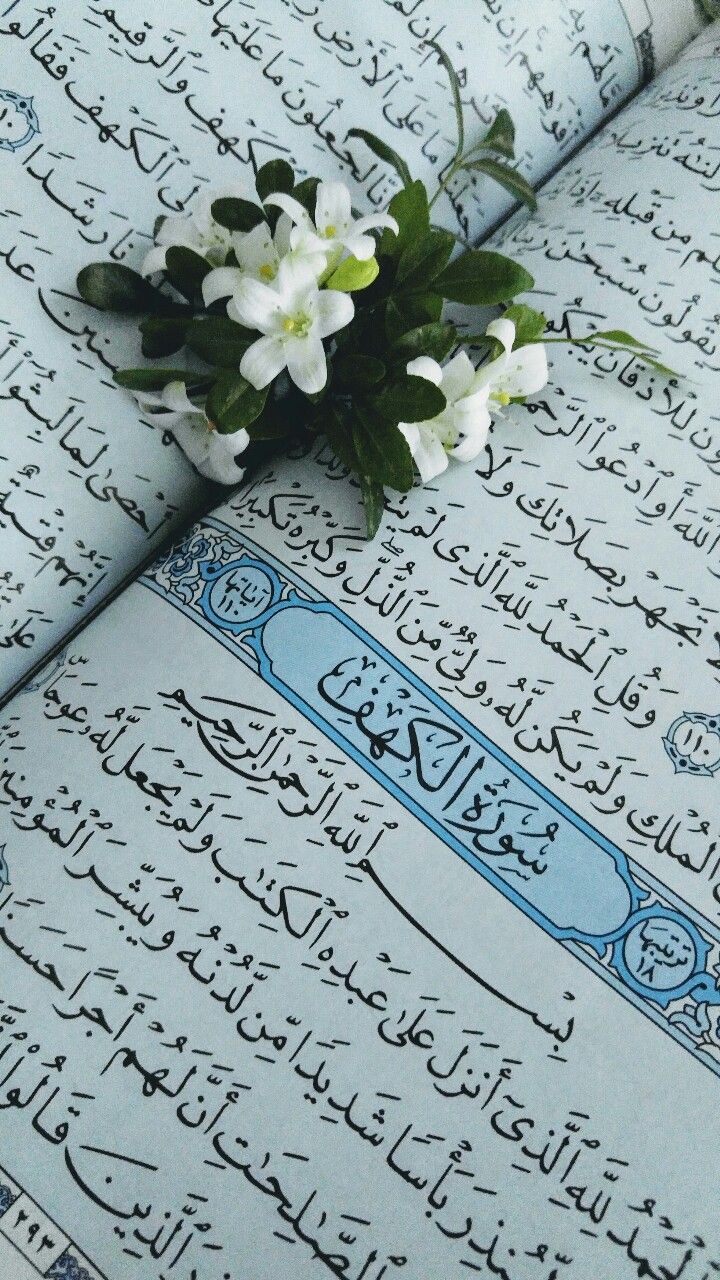 وَنَذِيرًا
تَنزِيلًا
مِن قَبْلِهِۦٓ إِذَا
وَيَقُولُونَ سُبْحَٰنَ
لِلْأَذْقَانِ
ٱللَّهَ أَوِ ٱدْعُوا۟
تَجْهَرْ بِصَلَاتِكَ وَلَا
١١٠ وَقُلِ ٱلْحَمْدُ لِلَّهِ ٱلَّذِى لَمْ
ٱلْمُلْكِ وَلَمْ يَكُن لَّهُۥ وَلِىٌّ مِّنَ ٱلذُّلِّ وَكَبِّرْهُ تَكْبِيرًا
ترتيبها ١٨ سُورَةُ الكَهْفِ آياتها ١١٠
بِسْمِ ٱللَّهِ ٱلرَّحْمَٰنِ ٱلرَّحِيمِ
ٱلْحَمْدُ لِلَّهِ ٱلَّذِىٓ أَنزَلَ عَلَىٰ عَبْدِهِ ٱلْكِتَٰبَ وَلَمْ يَجْعَل لَّهُۥ عِوَجَا
لِّيُنذِرَ بَأْسًا شَدِيدًا مِّن لَّدُنْهُ وَيُبَشِّرَ ٱلْمُؤْمِنِينَ
ٱلصَّٰلِحَٰتِ أَنَّ لَهُمْ أَجْرًا حَسَنًا
ٱلَّذِينَ قَالُوا۟
٢٩٣
لَهُم بِهِۦ
إِن
مَا عَلَى ٱلْأَرْضِ
لَجَٰعِلُونَ مَا عَلَيْهَا
وَٱلرَّقِيمِ
ٱلْكَهْفِ فَقَالُوا۟
رَشَدًا ١٠
سِنِينَ
أَحْصَىٰ لِمَا لَبِثُوٓا۟
إِنَّهُمْ فِتْيَةٌ
عَلَىٰ